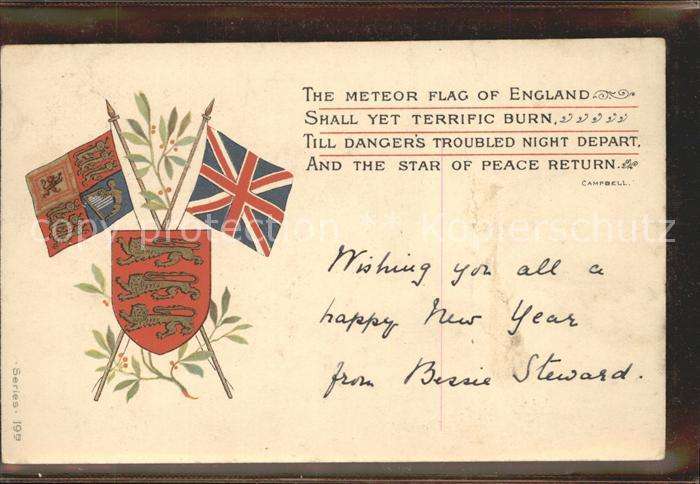 THE METEOR FLAG OF ENGLAND
SHALL YET TERRIFIC BURN,
TILL DANGER'S TROUBLED NIGHT DEPART,
AND THE STAR OF PEACE RETURN.
CAMPBELL.
copy protection ** Kopierschutz
Wishing you all a
happy New Year
from Bessie Steward.
·Series· 199